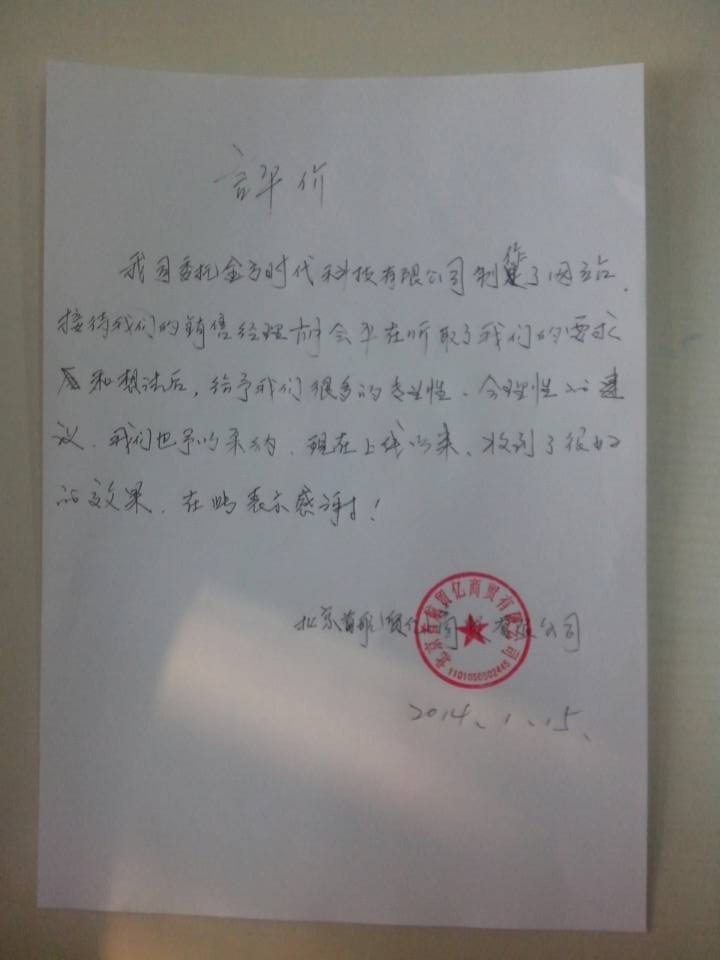 評价
我司委托金方时代科技有限公司制作了网站.
接待我们的销售经理 会平在听取了我们的要求
和想法后,给予我们很多的专业性、合理性的建
议.我们也予以采纳.现在上线以来,收到了很好
的效果.在此表示感谢!
北京首航贸亿商贸有限公司
北京首航贸亿商贸有限公司
1101050502445
2014.1.15.